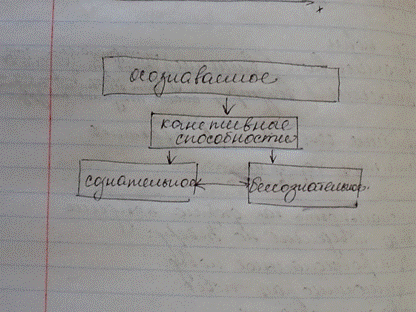 x
осознаваемое
когнетивные
способности
сознательное
бессознательное